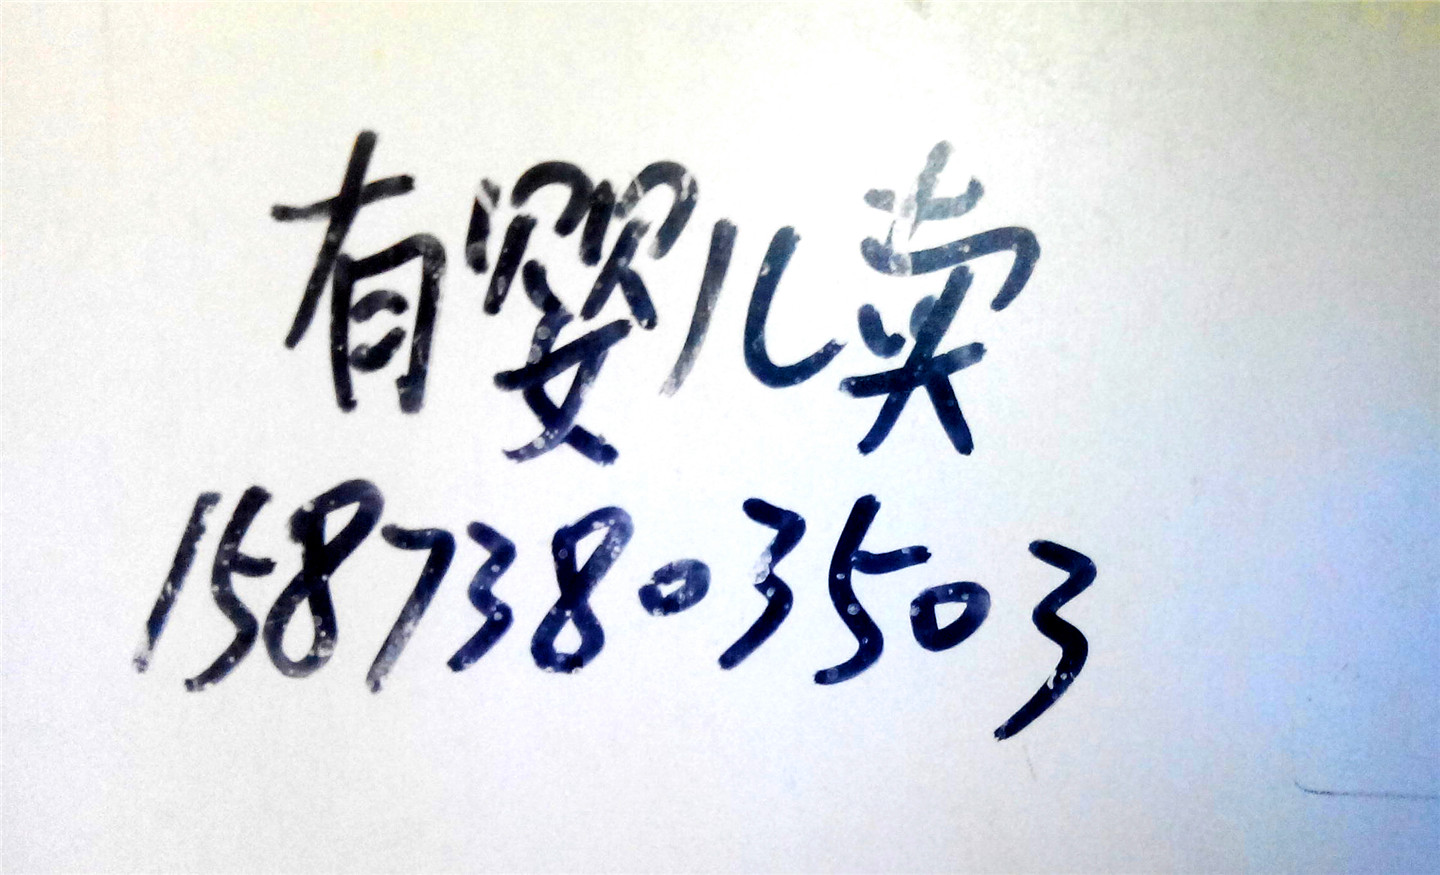 有婴儿卖
15873803503